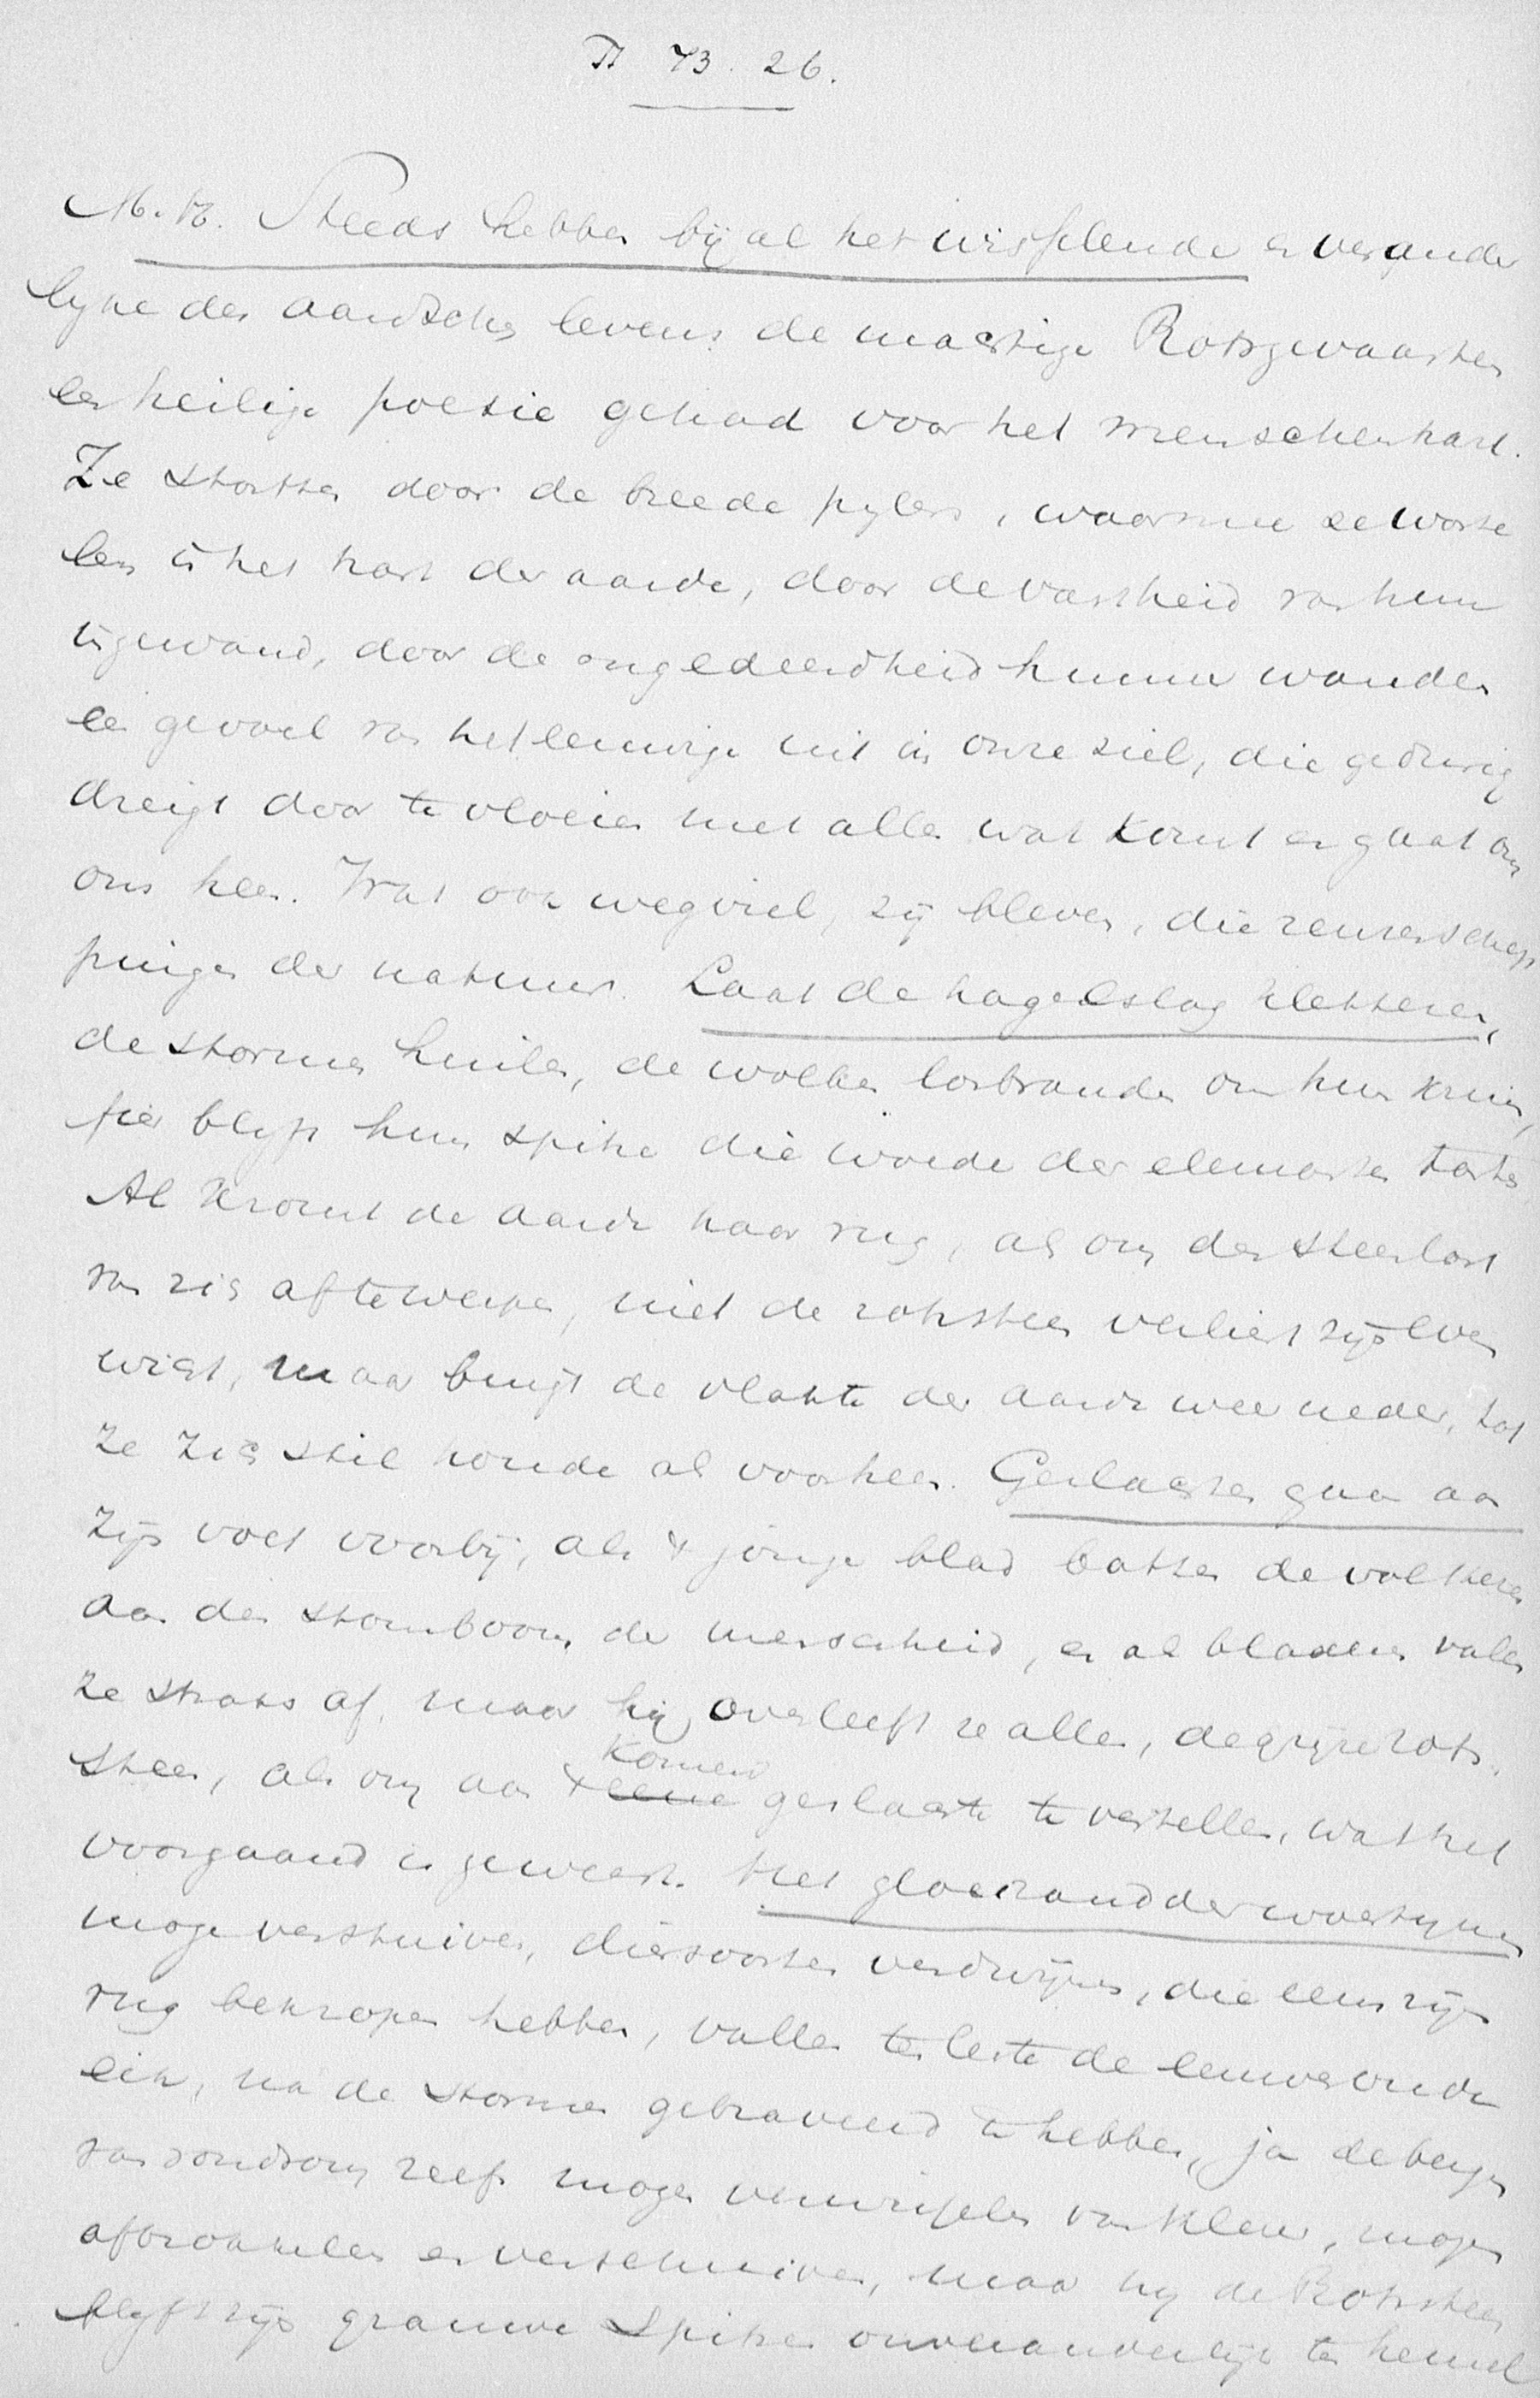 Ps 73. 26.
M. H. Steeds hebben bij al het wisselende en verander
lyke des aardschen levens de machtige Rotsgevaarten
een heilige poesie gehad voor het menschenhart.
Ze stortten door de breede pylers, waarmee ze worte
len in het hart der aarde, door de vastheid van hun
ingewand, door de ongedeerdheid hunner wanden
een gevoel van het eeuwige uit in onze ziel, die gedurig
dreigt door te vloeien met alles wat komt en gaat om
ons heen. Wat ook wegviel, zij bleven, die reuzenschep
pingen der natuur. Laat de hagelslag kletteren,
de stormen huilen, de wolken losbranden om hun kruin,
fier blijft hun spitse die woede der elementen tarten
Al kromt de aarde haar rug, als om den steenlast
van zich afte werpen, niet de rotssteen verliest zijn even
wicht, maar buigt de vlakte der aarde weer neder, tot
ze zich stil houde als voorheen. Geslachten gaan aan
zijn voet voorbij, als 't jonge blad botten de volkeren
aan den stamboom der menschheid, en als bladeren vallen
ze straks af, maar hij overleeft ze allen, de grijze rots
steen, als om aan 't eene komend geslacht te vertellen, wat het
voorgaand is geweest. Het gloeizand der woestynen
moge verstuiven, diersoorten verdwijnen, die eens zijn
rug bekropen hebben, vallen ten leste de eeuwenoude
eik, na de stormen gebraveerd te hebben, ja de bergen
van rondsom zelfs mogen verwisselen van kleur, mogen
afbrokkelen en verschuiven, maar hij de Rotssteen
blyft zijn grauwe Spitsen onveranderlijk ten hemel